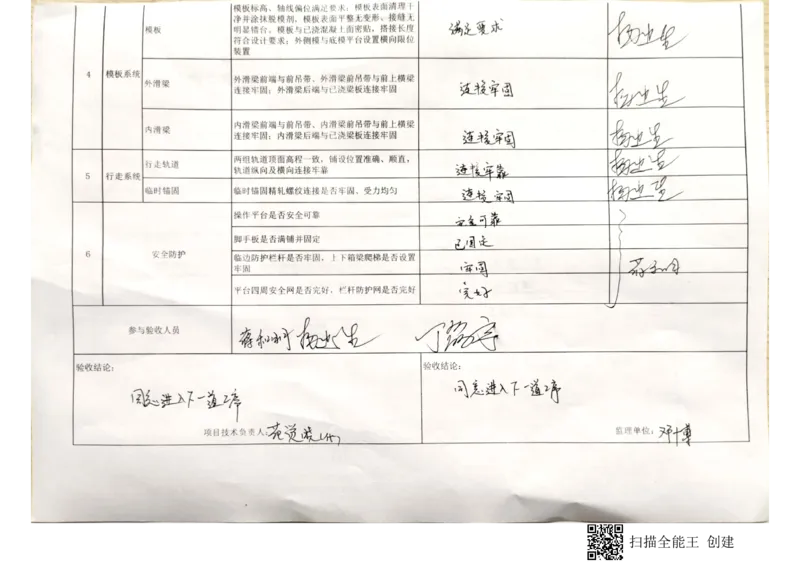 模板标高、轴线偏位满足要求；模板表面清理干
净并涂抹脱模剂，模板表面平整无变形、接缝无
明显错台。模板与已浇混凝土面密贴，搭接长度
符合设计要求；外侧模与底模平台设置横向限位
装置
模板
满足要求
4
模板系统
外滑梁
外滑梁前端与前吊带、外滑梁前吊带与前上横梁
连接牢固；外滑梁后端与已浇梁板连接牢固
连接牢固
内滑梁
内滑梁前端与前吊带、内滑梁前吊带与前上横梁
连接牢固；内滑梁后端与已浇梁板连接牢固
连接牢固
5
行走系统
行走轨道
两组轨道顶面高程一致，铺设位置准确、顺直；
轨道纵向及横向连接牢靠
连接牢靠
临时锚固
临时锚固精轧螺纹连接是否牢固、受力均匀
连接牢固
6
安全防护
操作平台是否安全可靠
安全可靠
脚手板是否满铺并固定
已固定
临边防护栏杆是否牢固，上下箱梁爬梯是否设置
牢固
牢固
平台四周安全网是否完好、栏杆防护网是否完好
完好
参与验收人员
验收结论：
同意进入下一道工序
项目技术负责人：
验收结论：
同意进入下一道工序
监理单位：
扫描全能王 创建